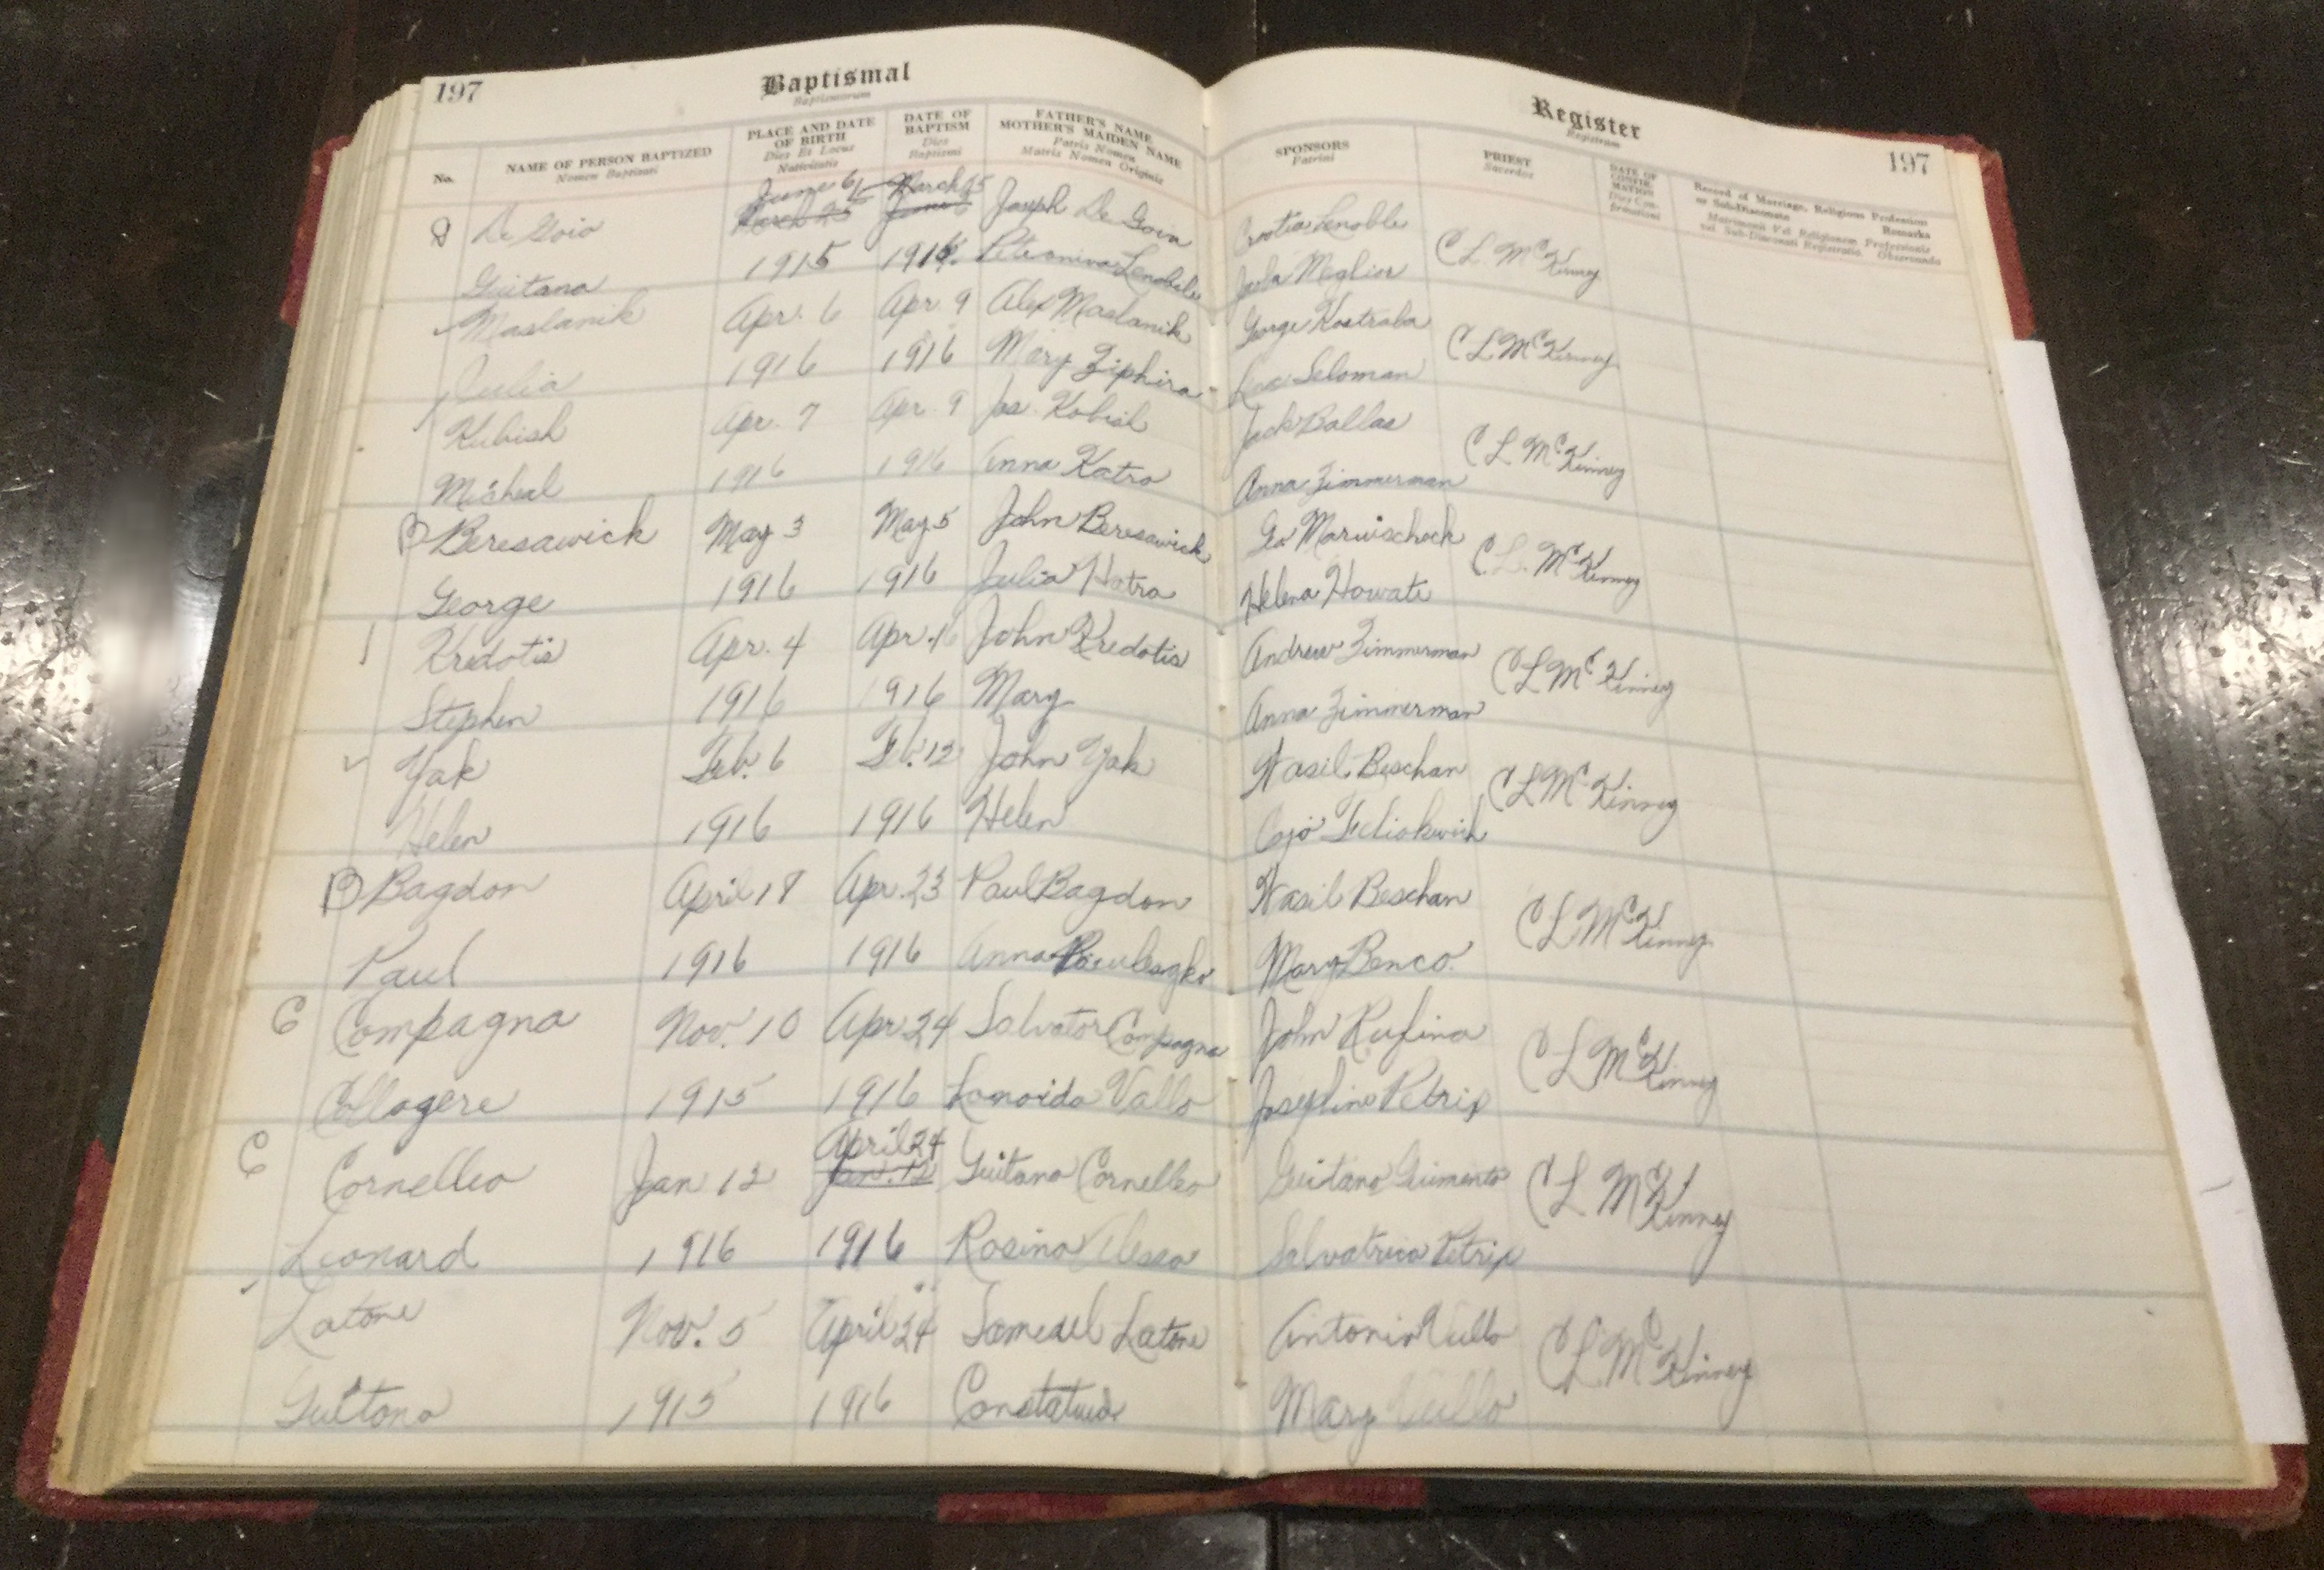 197 Baptismal Register 197
Baptismorum Registrum
No. NAME OF PERSON BAPTIZED PLACE AND DATE OF BIRTH DATE OF BAPTISM FATHER'S NAME MOTHER'S MAIDEN NAME SPONSORS PRIEST DATE OF CONFIRMATION Record of Marriage, Religious Profession or Sub-Diaconate Remarks
Nomen Baptizati Dies Et Locus Nativitatis Dies Baptismi Patris Nomen Matris Nomen Originis Patrini Sacerdos
D De Goio June 6 March 25 Joseph De Goia Lenoble
March 25 June 6
Guitana 1915 1916 Lenoble Meglior C L McKinney
Maslanik Apr. 6 Apr. 9 Alex Maslanik George Kostraba
Julia 1916 1916 Mary Ziphira Seloman C L McKinney
Kubish Apr. 7 Apr. 9 Jos. Kobish Jack Ballas
Micheal 1916 1916 Anna Katro Anna Zimmerman C L McKinney
B Beresawick May 3 May 5 John Beresawick Geo Marwischock
George 1916 1916 Julia Hatra Helena Howate C L. McKinney
Kredotis Apr. 4 Apr. 16 John Kredotis Andrew Zimmerman
Stephen 1916 1916 Mary Anna Zimmerman C L McKinney
Yak Feb. 6 Feb. 12 John Yak Wasil Beschan
Helen 1916 1916 Helen C L McKinney
B Bagdon April 18 Apr. 23 Paul Bagdon Wasil Beschan
Paul 1916 1916 Anna Mary Benco. C L McKinney
C Compagna Nov. 10 Apr 24 Salvator Compagna John Rufina
Collogere 1915 1916 Vallo Josephine Petrix C L McKinney
April 24
C Cornelleo Jan 12 Jan. 12 Guitano Cornelleo Guitano Giumento
Leonard 1916 1916 Rosina Alessa Salvatrica Petrix C L McKinney
Latone Nov. 5 April 24 Samuel Latone Antonio Vullo
Guitona 1915 1916 Mary Vullo C L McKinney